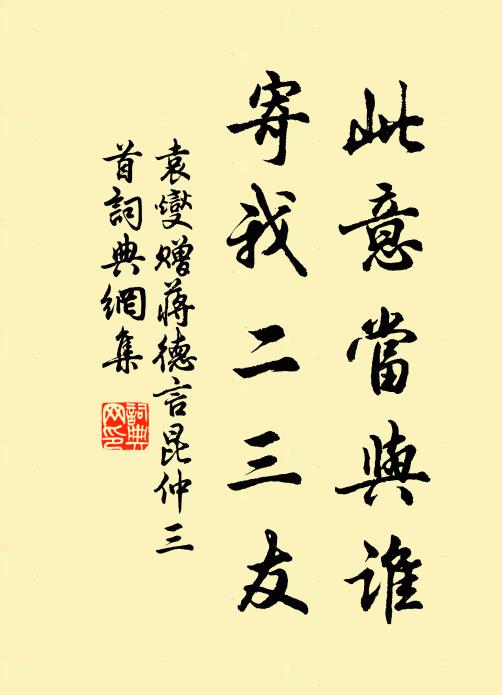 此意當與誰
寄我二三友
袁燮贈蔣德言昆仲三
首詞典網集
詞典
网印